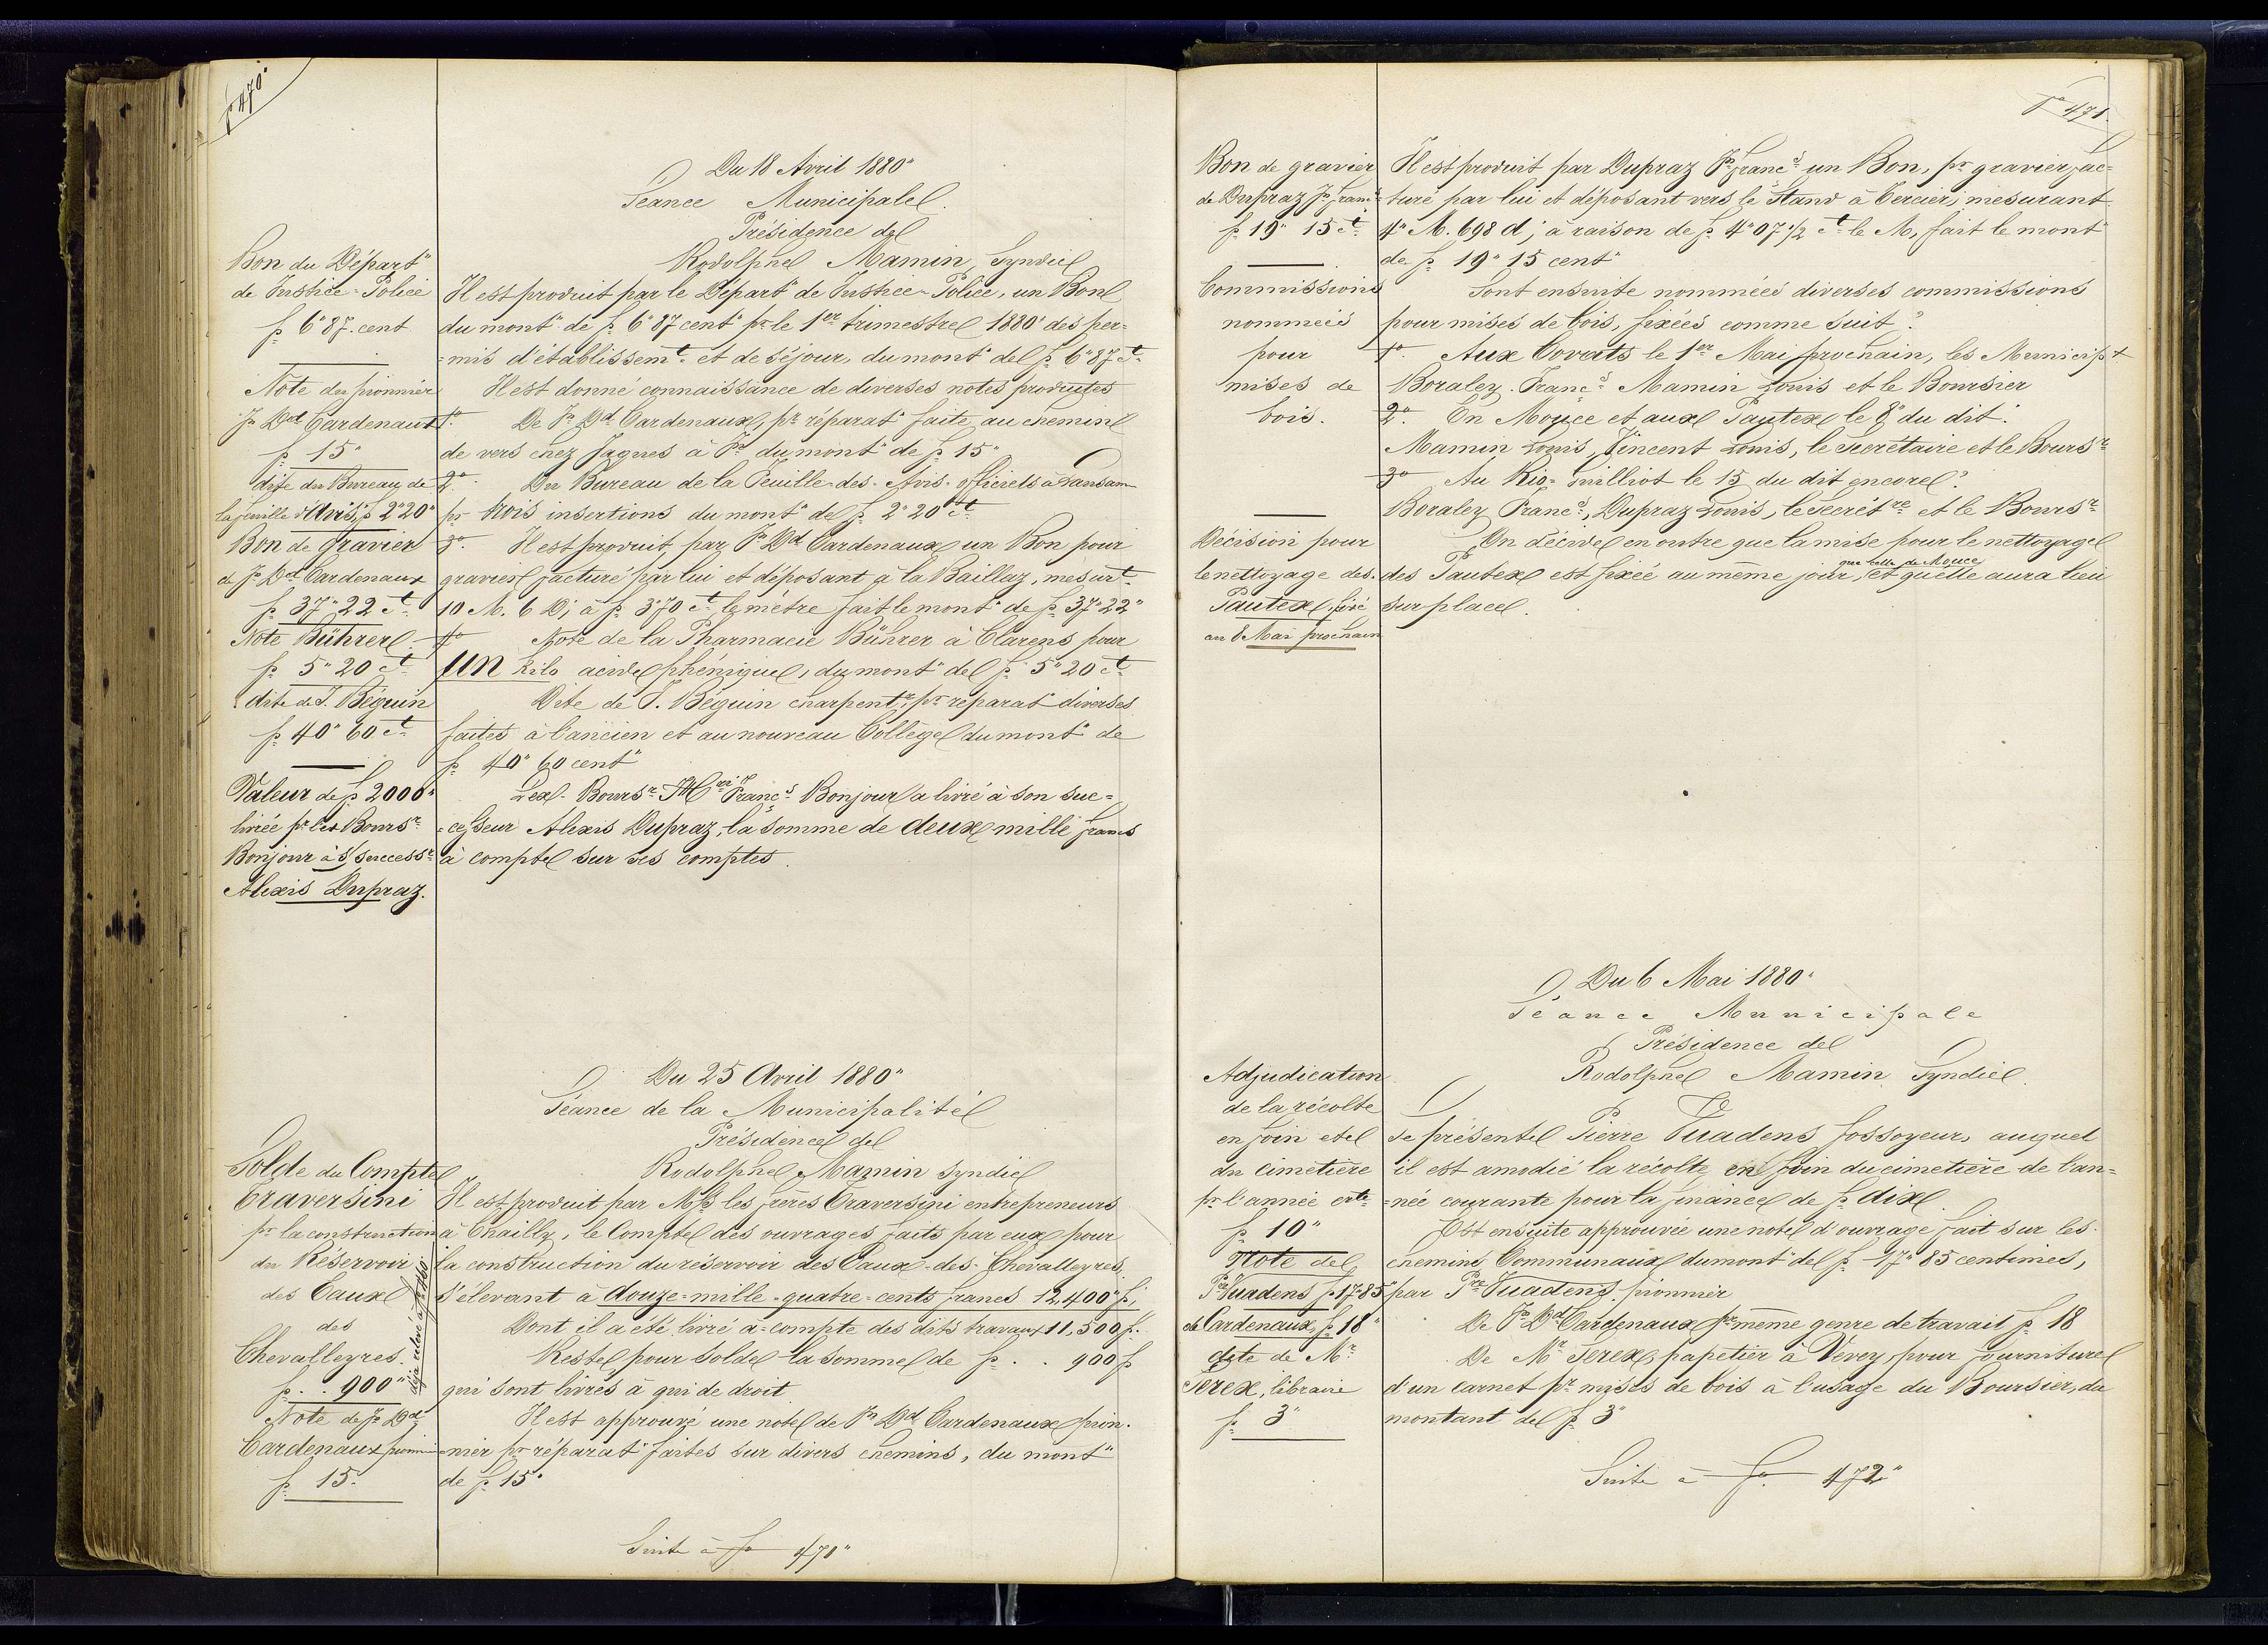 fº 470"
Du 18 Avril 1880"
Séance Municipale.
Présidence de
Rodolphe Mamin, Syndic
Bon du Départ"
de Justice-Police
fr. 6"87. cent
Il est produit par le Départ" de Justice-Police, un Bon
du mont" de fr. 6"87 cent" pr. le 1er trimestre 1880" des per=
=mis d'établissemt. et de séjour, du mont" de fr. 6"87 ct.
Note du pionnier
Jn Dd Cardenaux
fr. 15"
Il est donné connaissance de diverses notes produites
1º. De Jn Dd Cardenaux, pr. réparat" faite au chemin
de vers chez Jaques à Jr du mont" de fr. 15"
dite du Bureau de
la feuille d'Avis, fr. 2"20"
2º. Du Bureau de la Feuille-des-Avis-officiels à Lausann
pr. trois insertions du mont" de fr. 2"20 ct.
Bon de gravier
de Jn Dd Cardenaux
fr. 37"22 ct.
3º. Il est produit par Jn Dd Cardenaux un Bon pour
gravier facturé par lui et déposant à la Baillaz, mesurt.
10 M. 6 D; à fr. 3"70 ct. le mètre fait le mont" de fr. 37"22"
Note Bührer
fr. 5"20 ct.
4º Note de la Pharmacie Bührer à Clarens pour
UN kilo acide phénique, du mont" de fr. 5"20 ct.
dite de J. Béguin
fr. 40"60 ct.
Dite de J. Béguin charpentr. pr. réparat" diverses
faites à l'ancien et au nouveau Collège du mont" de
fr. 40"60 cent"
Valeur de fr. 2000"
livrée pr. l'ex Boursr.
Bonjour à s/ successr.
Alexis Dupraz.
L'ex-Boursr. Hri Francs. Bonjour a livré à son suc=
=cesseur Alexis Dupraz, la somme de deux mille francs
à compte sur ses comptes.
Du 25 Avril 1880"
Séance de la Municipalité
Présidence de
Rodolphe Mamin Syndic
Solde du Compte
Traversini
pr. la construction
du Réservoir
des Eaux
des
Chevalleyres.
fr. . . 900"
Il est produit par MM les frères Traversini entrepreneurs
à Chailly, le Compte des ouvrages faits par eux pour
la construction du réservoir des Eaux-des-Chevalleyres,
s'élevant à douze-mille-quatre-cents francs 12,400" fr,
Dont il a été livré à-compte des dits travaux 11,500 fr.
Reste pour solde la somme de fr. . . 900 fr
qui sont livrés à qui de droit
Note de Jn Dd
Cardenaux pionni
fr. 15.
Il est approuvé une note de Jn Dd Cardenaux pion.
=nier pr. réparat" faites sur divers chemins, du mont"
de fr. 15"
Suite à fº 471"
fº 471.
Bon de gravier
de Dupraz Jn Francs.
fr. 19" 15 ct.
Il est produit par Dupraz Jn Francs. un Bon, pr. gravier fac=
=turé par lui et déposant vers le Stand à Cercier, mesurant
4" M. 698 d; à raison de fr. 4"07 1/2 ct. le M, fait le mont"
de fr. 19"15 cent"
Commissions
nommées
pour
mises de
bois.
Sont ensuite nommées diverses commissions
pour mises de bois, fixées comme suit:
1º. Aux Covats le 1er Mai prochain, les Municip x
Boraley Francs. Mamin Louis et le Boursier
2º. En Mouce et aux Pautex le 8" du dit.
Mamin Louis, Vincent Louis, le secrétaire et le Boursr.
3º Au Rio-Guilliot le 15 du dit encore:
Boraley Francs., Dupraz Louis, le secrétre et le Boursr.
Décision pour
le nettoyage des
Pautex, fixé
au 8 Mai prochain
On décide en outre que la mise pour le nettoyage
des Pautex est fixée au même jour, que celle de Mouce et qu'elle aura lieu
sur place.
Du 6 Mai 1880"
Séance Municipale
Présidence de
Rodolphe Mamin Syndic.
Adjudication
de la récolte
en foin et
du cimetière
pr. l'année crte.
fr. 10"
Se présente Pierre Vuadens fossoyeur, auquel
il est amodié la récolte en foin du cimetière de l'an=
=née courante pour la finance de fr. dix.
Note de
Pre Vuadens fr. 17"85"
Est ensuite approuvée une note d'ouvrage fait sur les
chemins Communaux du mont" de fr. 17"85 centimes,
par Pre Vuadens pionnier
de Cardenaux, fr. 18"
De Jn Dd Cardenaux pr. même genre de travail fr. 18
dite de Mr.
Terex, libraire
fr. 3"
De Mr. Terex, papetier à Vevey, pour fourniture
d'un carnet pr. mises de bois à l'usage du Boursier, du
montant de fr. 3"
Suite à fº. 472"